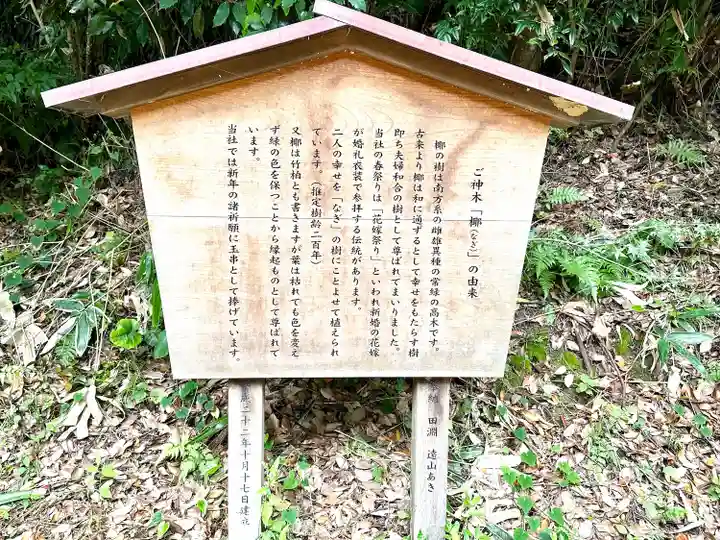 ご神木「梛(なぎ)」の由来
梛の樹は南方系の雌雄異種の常緑の高木です。
古来より梛は和に通ずるとして幸せをもたらす樹
即ち夫婦和合の樹として尊ばれてまいりました。
当社の春祭りは「花嫁祭り」といわれ新婚の花嫁
が婚礼衣装で参拝する伝統があります。
二人の幸せを「なぎ」の樹にことよせて植えられ
ています。(推定樹齢二百年)
又梛は竹柏とも書きますが葉は枯れても色を変え
ず緑の色を保つことから縁起ものとして尊ばれて
います。
当社では新年の諸祈願に玉串として捧げています。
納 田淵 遠山あき
二十二年十月十七日建立